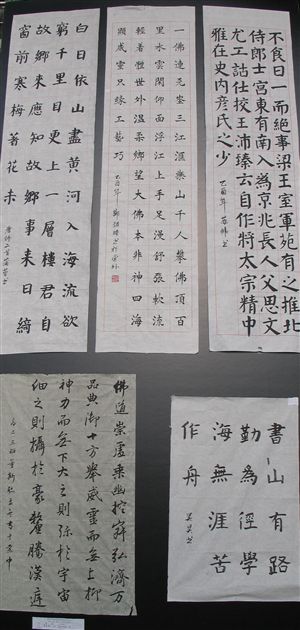 不食曰一而絕事梁王室軍苑有之推北
侍郎士宮東有南入為京兆長人父思文
尤工詁仕挍王沛臻玄自作將太宗精中
雅在史内彦氏之少
乙酉年
一佛連 鑒三江滙樂山千人攀佛頂百
里水雲閑仰面浮江上手足漫舒張軟流
輕著 世外溫柔鄉望大佛本非神四海
顯威靈只緣工藝巧
乙酉年
白日依山盡黃河入海流欲
窮千里目更上一層樓君自
故鄉來應知故鄉事來日綺
窗前寒梅著花未
唐詩二首
書山有路
勤為徑學
海無涯苦
作舟
佛道崇虚乘幽控寂弘濟万
品典御十方舉威靈而無上抑
神力而無下大之則弥於宇宙
細之則攝於豪釐騰漢庭